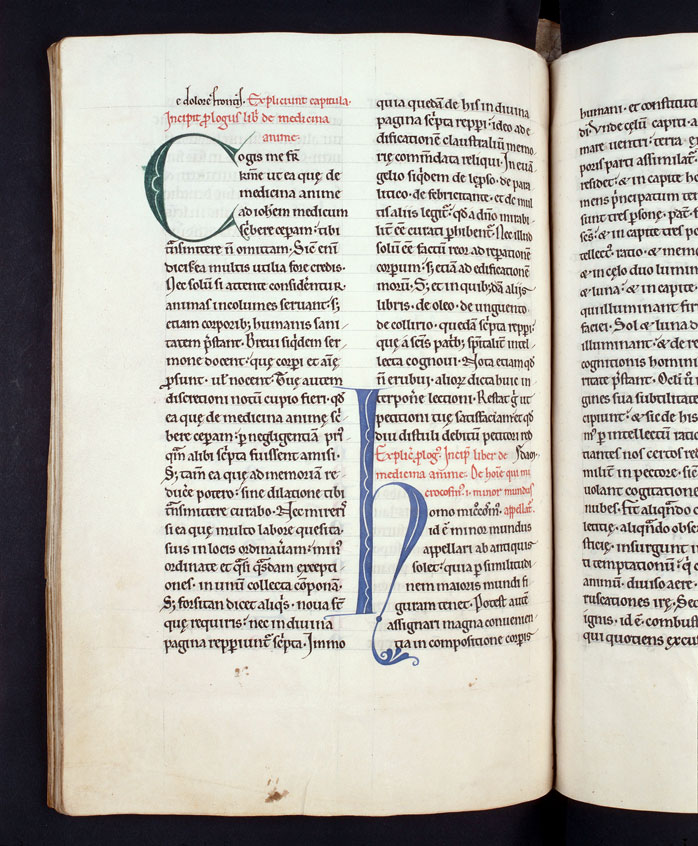 e dolore frontis. Expliciunt capitula.
Incipit prologus libri de medicina
anime.
Cogis me frr
kme ut ea que de
medicina anime
ad iohem medicum
scbere ceperam. tibi
tnsmittere n omittam. Sic eni
dici ea multis utilia fore credis.
Nec solu si attente considentur.
animas incolumes seruant. s;
etiam corporib; humanis sani
tatem pstant. Breui siqdem ser
mone docent. que corpi et aie
psunt. ul nocent. Tue autem
discretioni notu cupio fieri. qd
ea que de medicina anime sc
bere ceperam. p negligentia
qm alibi scpta fuissent amisi.
S; tam ea que ad memoriam re
duce potero. sine dilatione tibi
tnsmittere curabo. Nec mireris
si ea que multo labore quesita
suis in locis ordinaueram. min
ordinate et qsi qsdam excepti
ones. in unu collecta componam.
S; forsitan dicet aliqs. noua st
que requiris. nec in diuina
pagina reppiunt scpta. Immo
quia queda de his in diuina
pagina scpta reppi. ideo ad e
dificatione claustraliu memo
rie comdata reliqui. In eua
gelio siqdem de lepso. de para
litico. de febricitante. et de mul
tis aliis legit. qd a dno mirabi
lit ee curati phibent. Nec illud
solu ee factu reor ad reparatione
corporum. s; etia ad edificatione
moru. S; et in quibda aliis
libris. de oleo. de unguento.
de collirio. queda scpta reppi.
que a scis patb; spitali intel
lecta cognoui. Nota etiam qd
n erubui. alior dicta huic in
terpone lectioni. Restat g ut
petitioni tue satisfaciam et qd
diu distuli debitu petitori red
dam. Explic plog. Incip liber de
medicina anime. De hoie qui mi
crocosm. i. minor mundus
appellat.
Homo micocosm.
id e minor mundus
appellari ab antiquis
solet. quia p similitudi
nem maioris mundi fi
guram tenet. Potest aute
assignari magna conuenien
tia in compositione corpis
humani. et constituti
di. Unde celu capiti. a
mare uentri. terra
poris parti assimilat.
residet. & in capite ho
mens pincipatum ten
sunt tres psone. pat
& in capite tres po
tellect. ratio. & memo
& in celo duo lumin
& luna. & in capite.
qui illuminant fir
faciei. Sol & luna d
illuminant. & de re
cognitionis homini
ritate pstant. Oculi
gines sua subtilitate
cipiunt. & sic de his
p intellectu ratio
tiantes nos certos red
miliu in pectore. sic
uolant cogitation
nubes. fit aliqndo
letitie. aliqndo obscu
insurgunt
temptationu.
animu. diuiso aere.
ruscationes ire. Se
ignis. id e. combust
qui quotiens excu